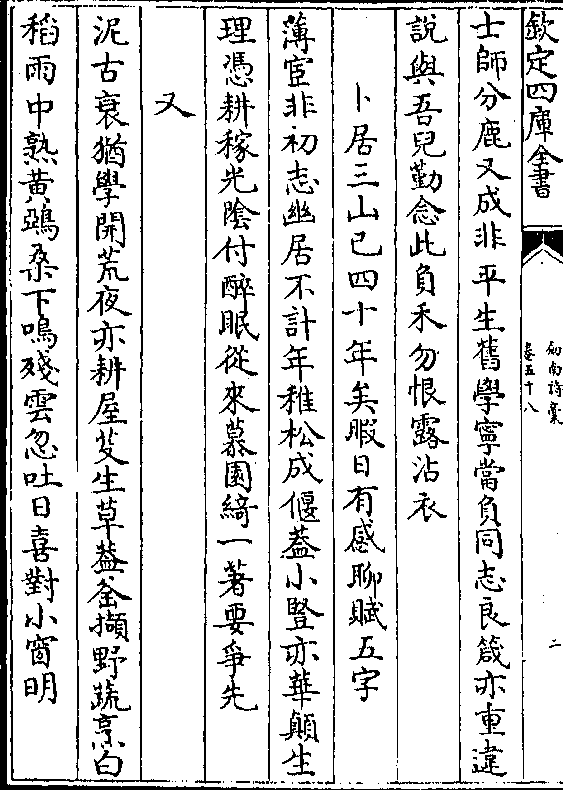 欽定四庫全書
劍南詩稾
卷五十八
二
士師分鹿又成非平生舊學寧當負同志良箴亦重違
說與吾兒勤念此負禾勿恨露沾衣
卜居三山已四十年矣暇日有感聊賦五字
薄宦非初志幽居不計年稚松成偃葢小豎亦華顛生
理憑耕稼光陰付醉眠從來慕園綺一著要爭先
又
泥古衰猶學開荒夜亦耕屋芟生草葢釜擷野蔬烹白
稻雨中熟黄鵶桑下鳴殘雲忽吐日喜對小窗明